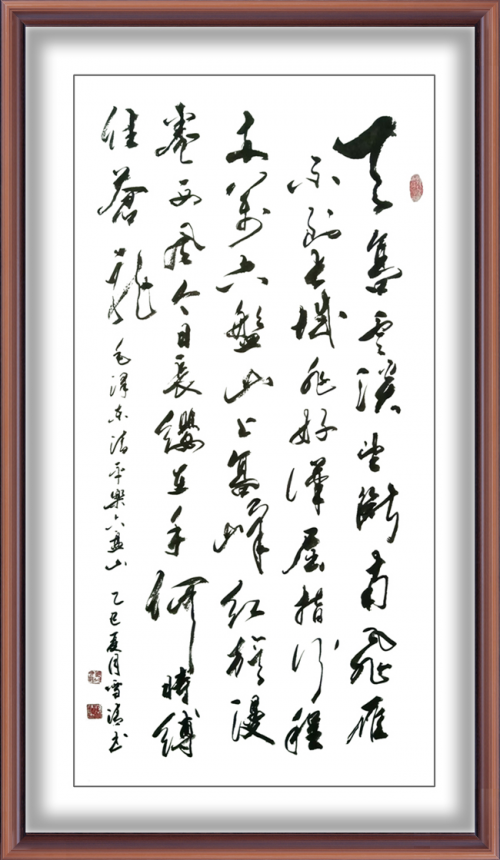 天高雲淡望斷南飛雁
不到長城非好漢屈指行程
二萬六盤山上高峰紅旗漫
卷西風今日長纓在手何時縛
住蒼龍 毛澤東清平樂六盤山 乙巳夏月雪清書